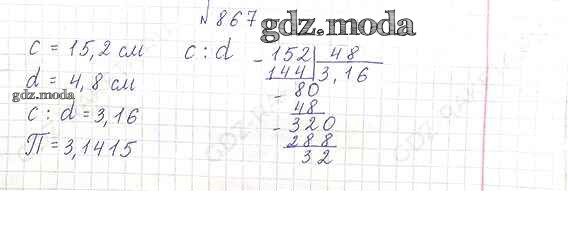 №867
gdz.moda
c = 15,2 см
d = 4,8 см
gdz.moda
c : d = 3,16
П = 3,1415
c : d
- 152 | 48
144 | 3,16
- 80
48
- 320
288
32